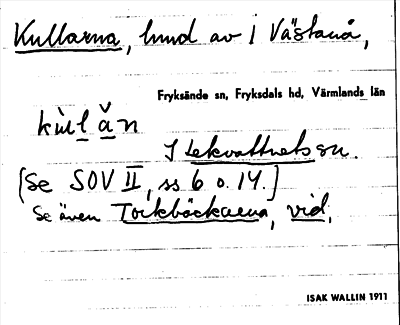 Kullarna, lund av 1 Västanå,
Fryksände sn, Fryksdals hd, Värmlands län
kùl ă n
I Lekvattnets sn.
[Se SOV II, ss 6 o. 14.]
Se även Torkbäckarna, vid.
ISAK WALLIN 1911